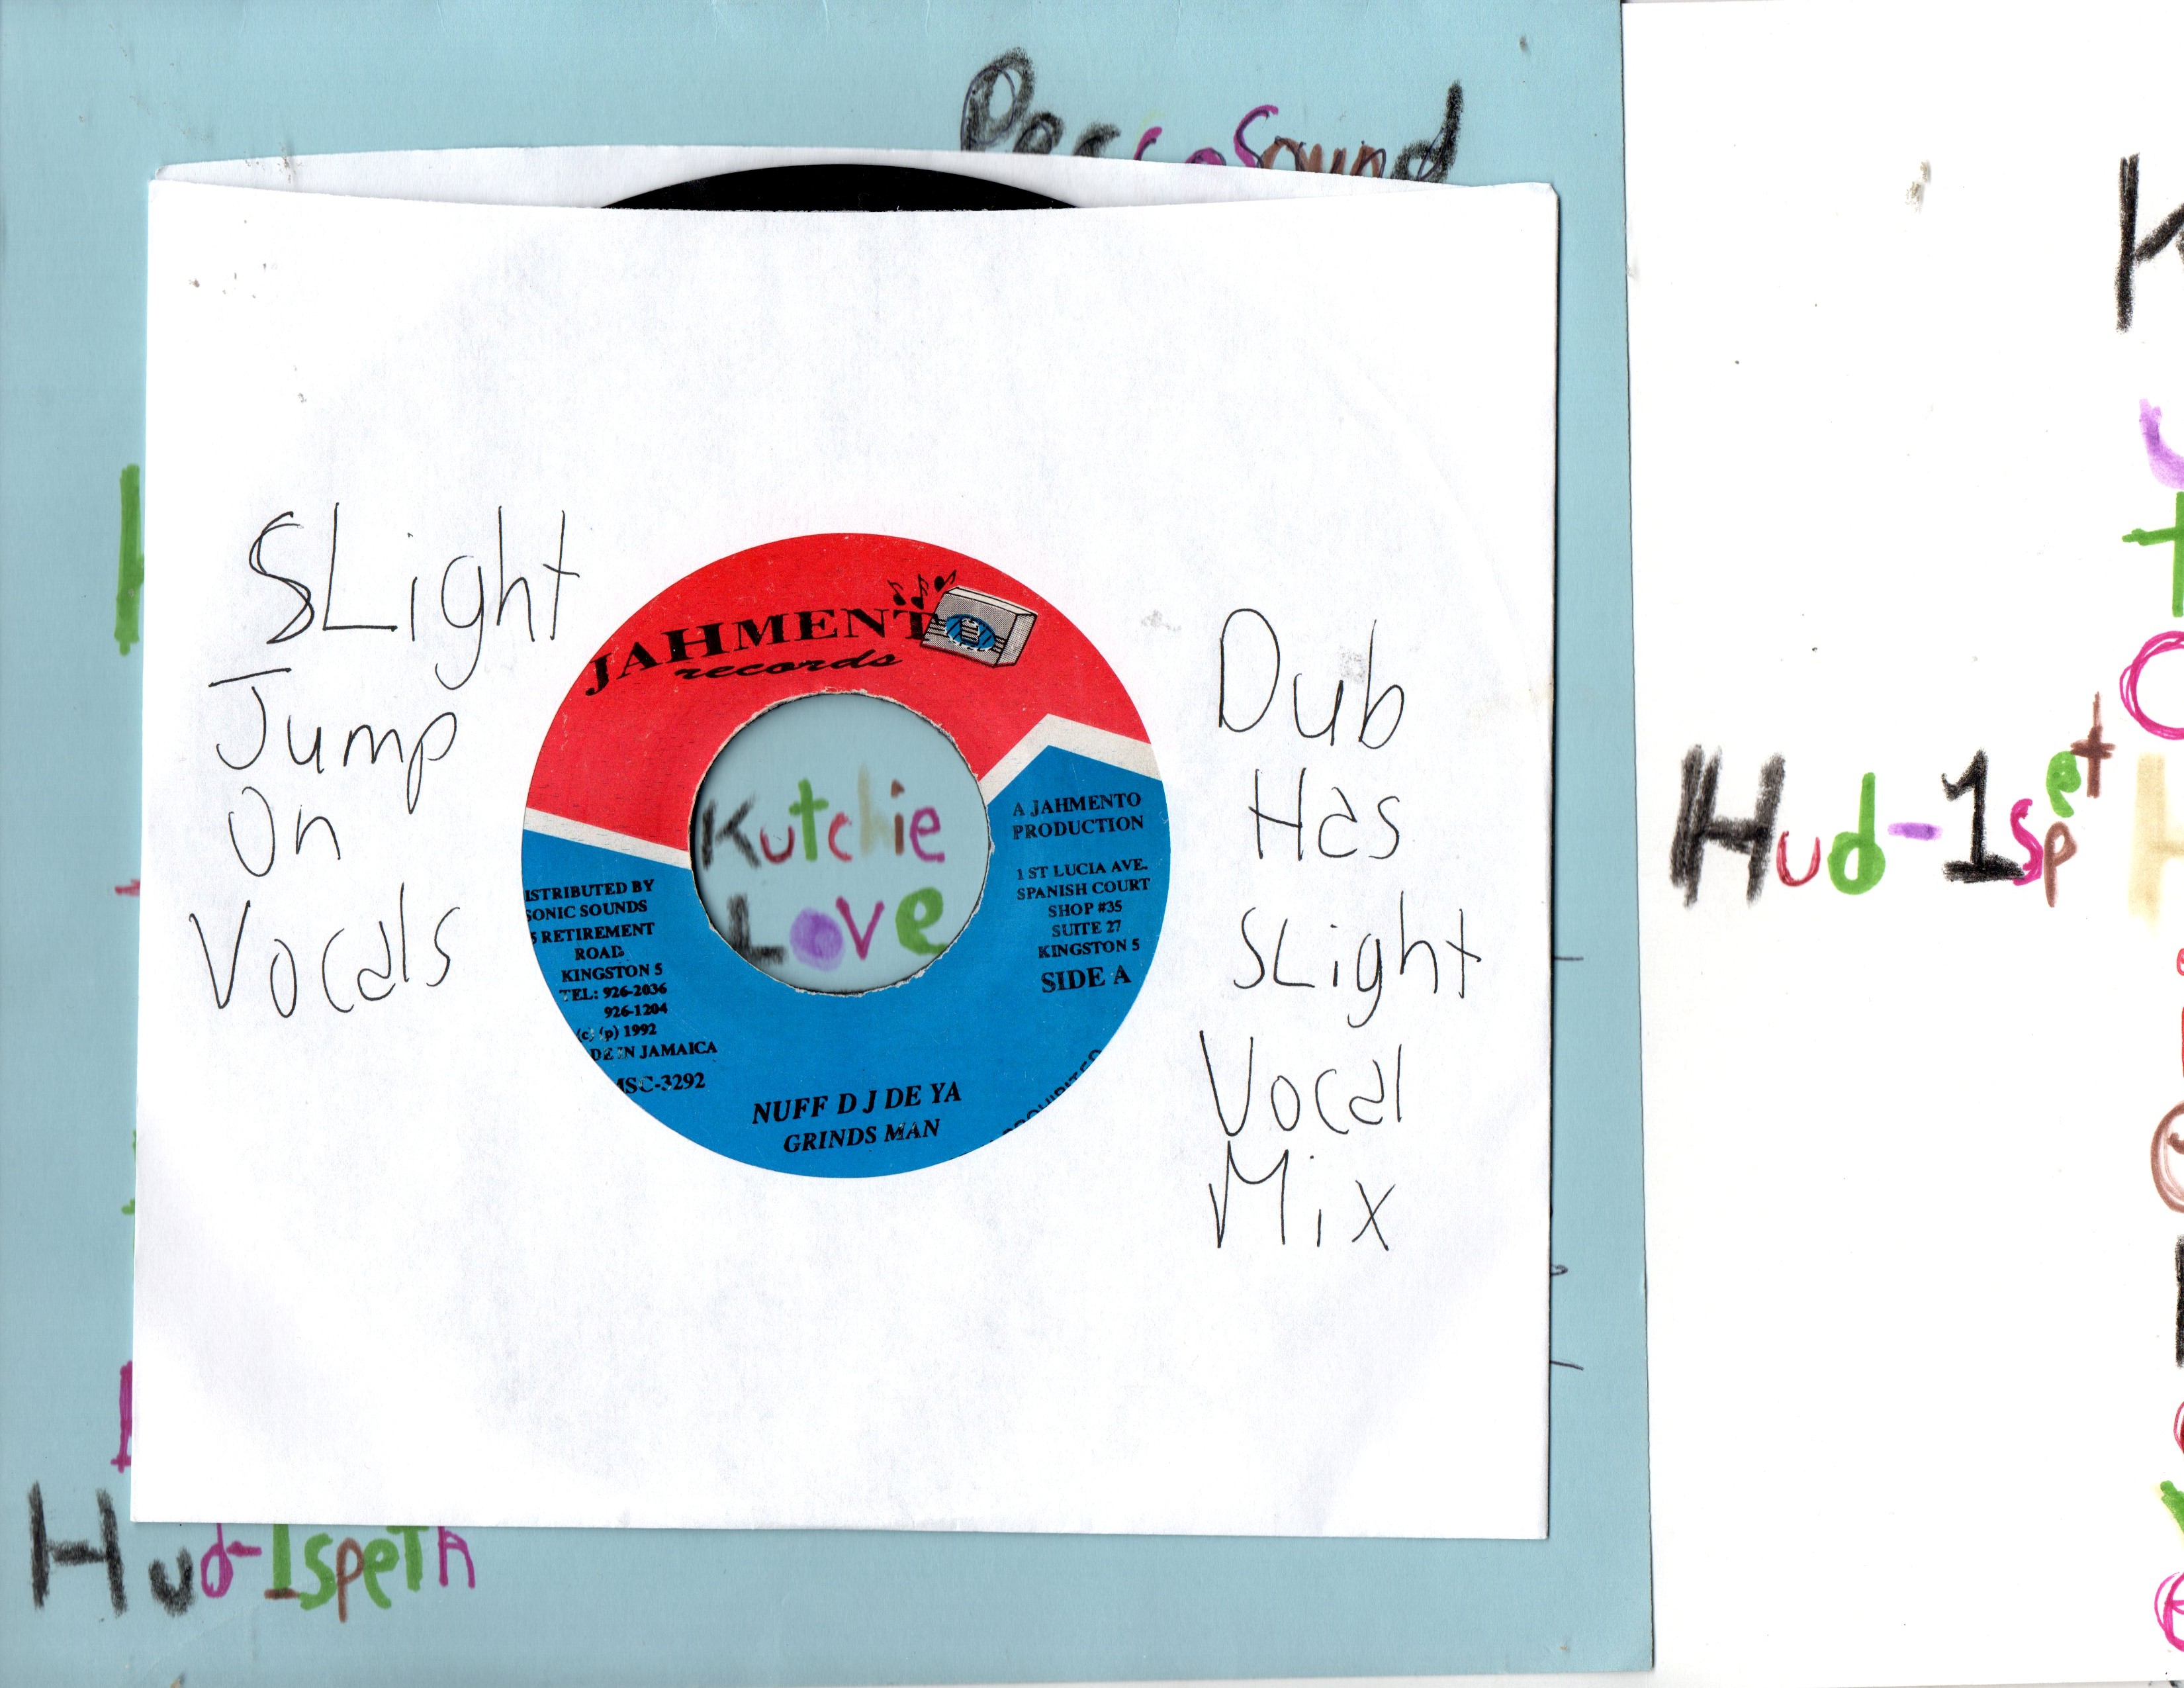 Sound
SLight
Jump
On
Vocals
JAHMENT
records
Kutchie
Love
A JAHMENTO
PRODUCTION
1 ST LUCIA AVE.
SPANISH COURT
SHOP #35
SUITE 27
KINGSTON 5
SIDE A
ISTRIBUTED BY
SONIC SOUNDS
5 RETIREMENT
ROAD
KINGSTON 5
TEL: 926-2036
926-1204
(c) (p) 1992
DE IN JAMAICA
MSC-3292
NUFF D J DE YA
GRINDS MAN
Dub
Has
SLight
Vocal
Mix
Hud-1spet
Hud-1speth